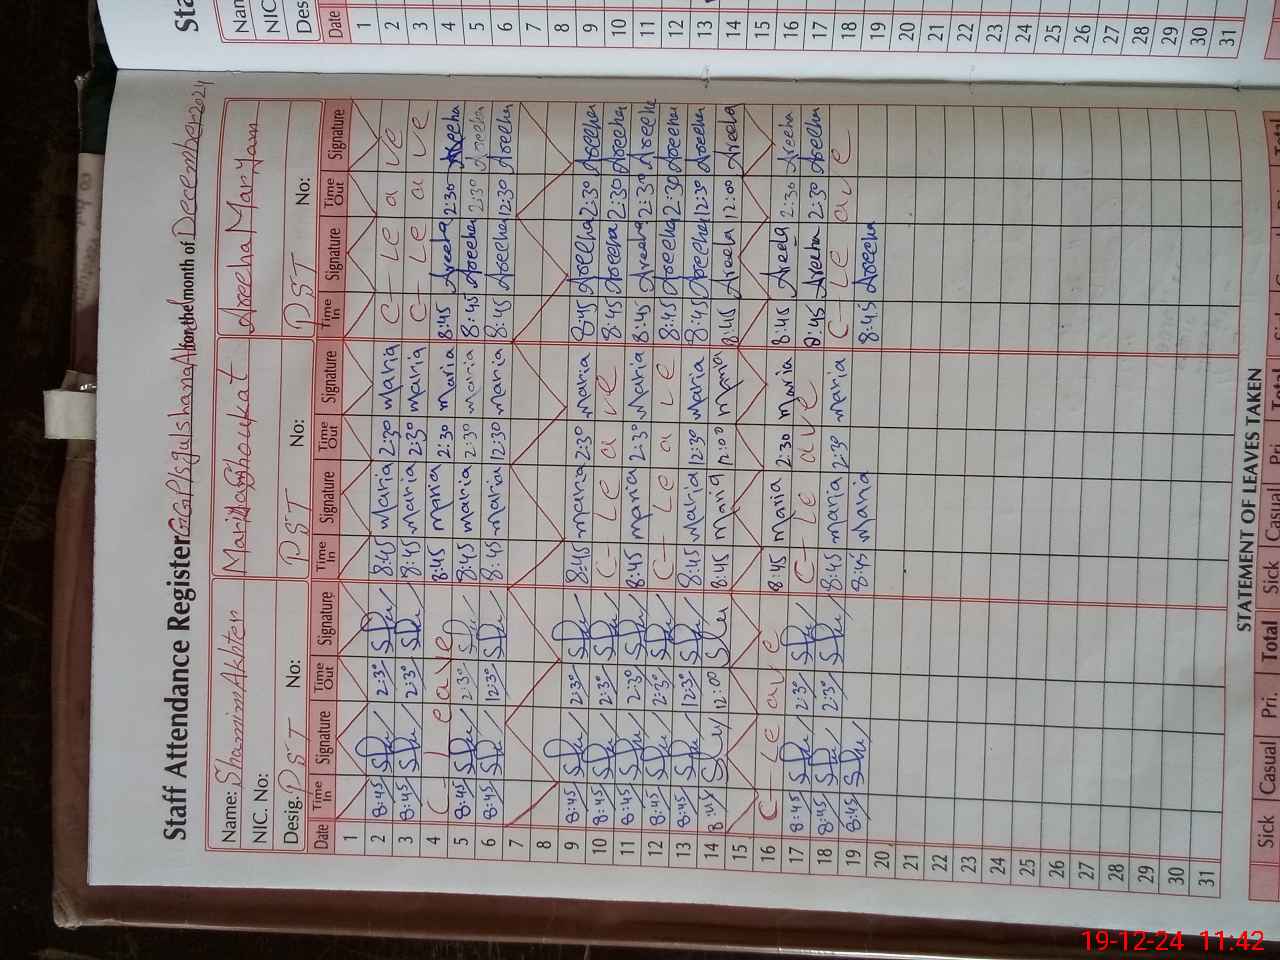 Staff Attendance Register GGP/s gulshanabad for the month of December 2024
Name: Shamim Akhter Maria Shoukat Areeha Maryam
NIC. No:
Desig. PST No: PST No: PST No:
Date Time In Signature Time Out Signature Time In Signature Time Out Signature Time In Signature Time Out Signature
1
2 8:45 2:30 8:45 Maria 2:30 Maria C- Leave
3 8:45 2:30 8:45 Maria 2:30 Maria C- Leave
4 C- Leave 8:45 Maria 2:30 Maria 8:45 Areeha 2:30 Areeha
5 8:45 2:30 8:45 Maria 2:30 Maria 8:45 Areeha 2:30 Areeha
6 8:45 12:30 8:45 Maria 12:30 Maria 8:45 Areeha 12:30 Areeha
7
8
9 8:45 2:30 8:45 Maria 2:30 Maria 8:45 Areeha 2:30 Areeha
10 8:45 2:30 C- Leave 8:45 Areeha 2:30 Areeha
11 8:45 2:30 8:45 Maria 2:30 Maria 8:45 Areeha 2:30 Areeha
12 8:45 2:30 C- Leave 8:45 Areeha 2:30 Areeha
13 8:45 12:30 8:45 Maria 12:30 Maria 8:45 Areeha 12:30 Areeha
14 8:45 12:00 8:45 Maria 12:00 Maria 8:45 Areeha 12:00 Areeha
15
16 C- Leave 8:45 Maria 2:30 Maria 8:45 Areeha 2:30 Areeha
17 8:45 2:30 C- Leave 8:45 Areeha 2:30 Areeha
18 8:45 2:30 8:45 Maria 2:30 Maria C- Leave
19 8:45 8:45 Maria 8:45 Areeha
20
21
22
23
24
25
26
27
28
29
30
31
STATEMENT OF LEAVES TAKEN
Sick Casual Pri. Total Sick Casual Pri. Total Total
Date
1
2
3
4
5
6
7
8
9
10
11
12
13
14
15
16
17
18
19
20
21
22
23
24
25
26
27
28
29
30
31
19-12-24 11:42